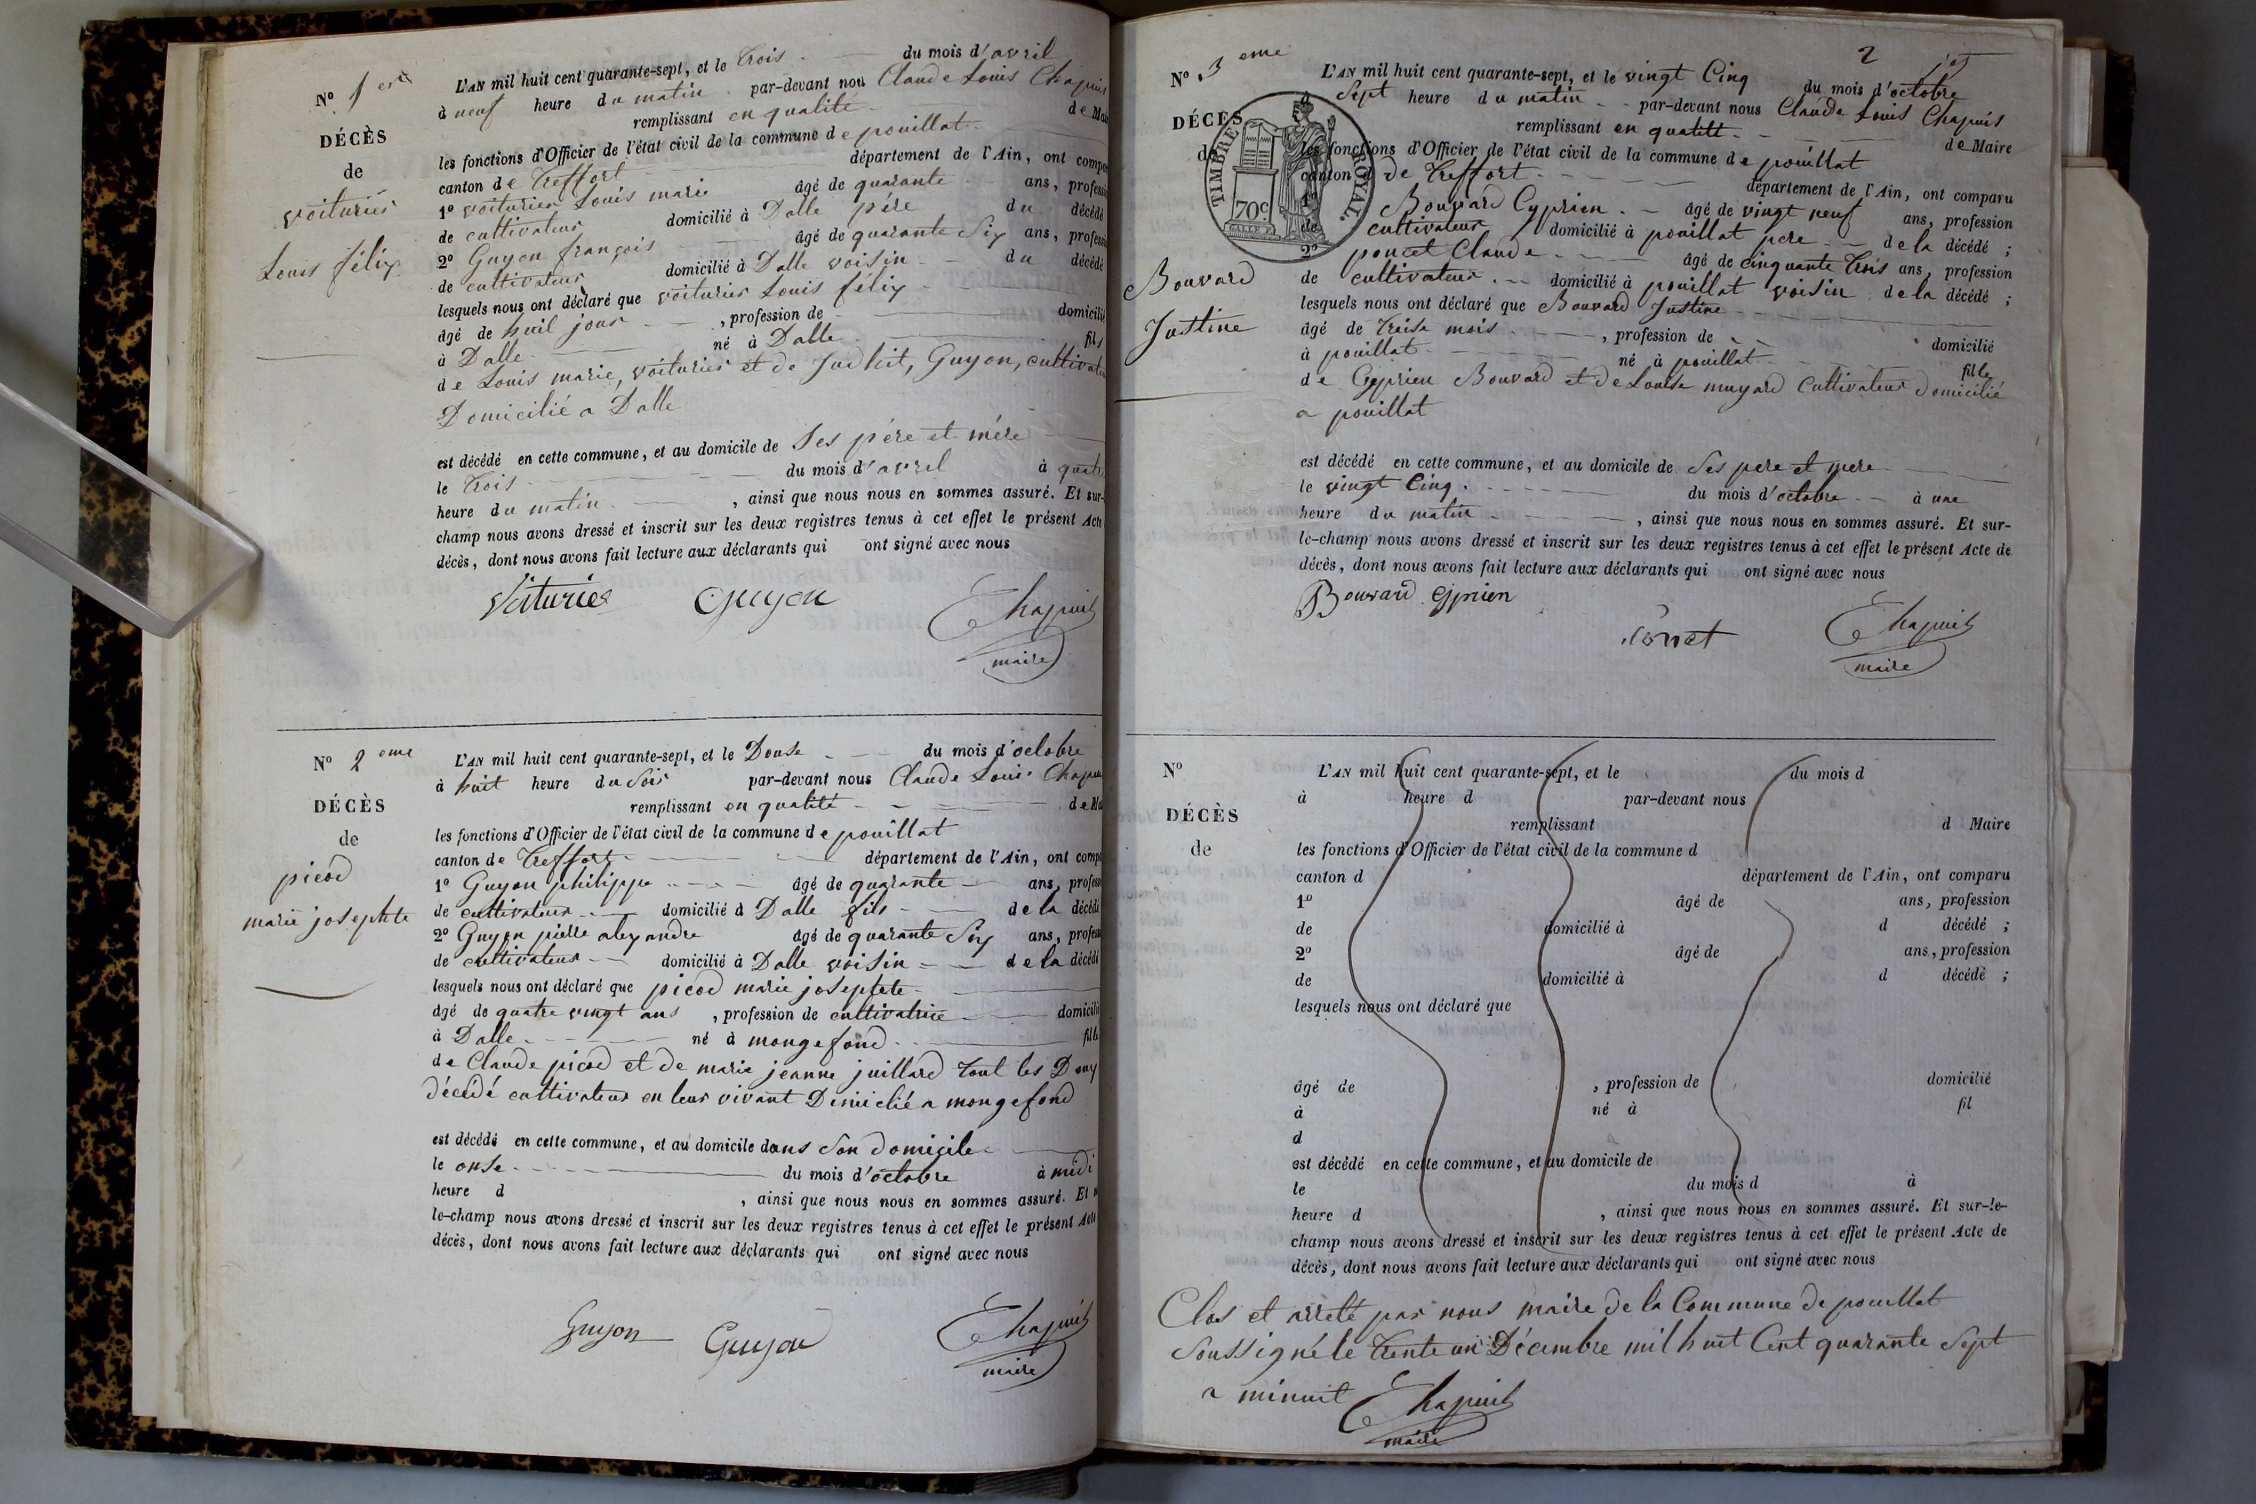 N° 1er
DÉCÈS
de
voiturier
Louis félix
L'AN mil huit cent quarante-sept, et le trois du mois d'avril
à neuf heure du matin par-devant nou Claude Louis Chapuis
remplissant en qualité de Mai
les fonctions d'Officier de l'état civil de la commune de pouillat
canton de treffort département de l'Ain, ont compa
1° voiturier Louis marie âgé de quarante ans, professi
de cultivateur domicilié à Dalle père du décédé
2° Guyon françois âgé de quarante Six ans, professi
de cultivateur domicilié à Dalle voisin du décédé
lesquels nous ont déclaré que voiturier Louis félix
âgé de huit jour , profession de domicilié
à Dalle né à Dalle fils
de Louis marie, voiturier et de Judhit, Guyon, cultivateu
Domicilié a Dalle
est décédé en cette commune, et au domicile de Ses père et mère
le trois du mois d'avril à quatr
heure du matin , ainsi que nous nous en sommes assuré. Et sur-
champ nous avons dressé et inscrit sur les deux registres tenus à cet effet le présent Acte
décès, dont nous avons fait lecture aux déclarants qui ont signé avec nous
Voiturier Guyon Chapuis
maire
N° 2eme
DÉCÈS
de
picod
marie josephte
L'AN mil huit cent quarante-sept, et le Douse du mois d'octobre
à huit heure du Soir par-devant nous Claude Louis Chapui
remplissant en qualité de Ma
les fonctions d'Officier de l'état civil de la commune de pouillat
canton de treffort département de l'Ain, ont comp
1° Guyon philippe âgé de quarante ans, profess
de cultivateur domicilié à Dalle fils de la décédé
2° Guyon pierre alexandre âgé de quarante Six ans, profess
de cultivateur domicilié à Dalle voisin de la décédé
lesquels nous ont déclaré que picod marie josephte
âgé de quatre vingt ans , profession de cultivatrice domicili
à Dalle né à mongefond fille
de Claude picod et de marie jeanne juillard tout les Doux
décédé cultivateur en leur vivant Dimicilié a mongefond
est décédé en cette commune, et au domicile dans Son domicile
le onse du mois d'octobre à midi
heure d , ainsi que nous nous en sommes assuré. Et
le-champ nous avons dressé et inscrit sur les deux registres tenus à cet effet le présent Acte
décès, dont nous avons fait lecture aux déclarants qui ont signé avec nous
Guyon Guyon Chapuis
maire
2
N° 3eme
DÉCÈS
TIMBRE ROYAL.
70c
Bouvard
Justine
L'AN mil huit cent quarante-sept, et le vingt Cinq du mois d'octobre
Sept heure du matin par-devant nous Claude Louis Chapuis
remplissant en qualité de Maire
les fonctions d'Officier de l'état civil de la commune de pouillat
canton de treffort département de l'Ain, ont comparu
1° Bouvard Cyprien âgé de vingt neuf ans, profession
de cultivateur domicilié à pouillat père de la décédé ;
2° poncet Claude âgé de cinquante trois ans, profession
de cultivateur domicilié à pouillat voisin de la décédé ;
lesquels nous ont déclaré que Bouvard Justine
âgé de treise mois , profession de domicilié
à pouillat né à pouillat fille
de Cyprien Bouvard et de Louise muyard Cultivateur Domicilié
a pouillat
est décédé en cette commune, et au domicile de Ses père et mère
le vingt Cinq du mois d'octobre à une
heure du matin , ainsi que nous nous en sommes assuré. Et sur-
le-champ nous avons dressé et inscrit sur les deux registres tenus à cet effet le présent Acte de
décès, dont nous avons fait lecture aux déclarants qui ont signé avec nous
Bouvard Cyprien
Chapuis
maire
N°
DÉCÈS
de
L'AN mil huit cent quarante-sept, et le du mois d
à heure d par-devant nous
remplissant d Maire
les fonctions d'Officier de l'état civil de la commune d
canton d département de l'Ain, ont comparu
1° âgé de ans, profession
de domicilié à d décédé ;
2° âgé de ans, profession
de domicilié à d décédé ;
lesquels nous ont déclaré que
âgé de , profession de domicilié
à né à fil
d
est décédé en cette commune, et au domicile de
le du mois d à
heure d , ainsi que nous nous en sommes assuré. Et sur-le-
champ nous avons dressé et inscrit sur les deux registres tenus à cet effet le présent Acte de
décès, dont nous avons fait lecture aux déclarants qui ont signé avec nous
Clos et arreté par nous maire de la Commune de pouillat
Soussigné le trente un Décembre mil huit Cent quarante Sept
a minuit Chapuis
maire